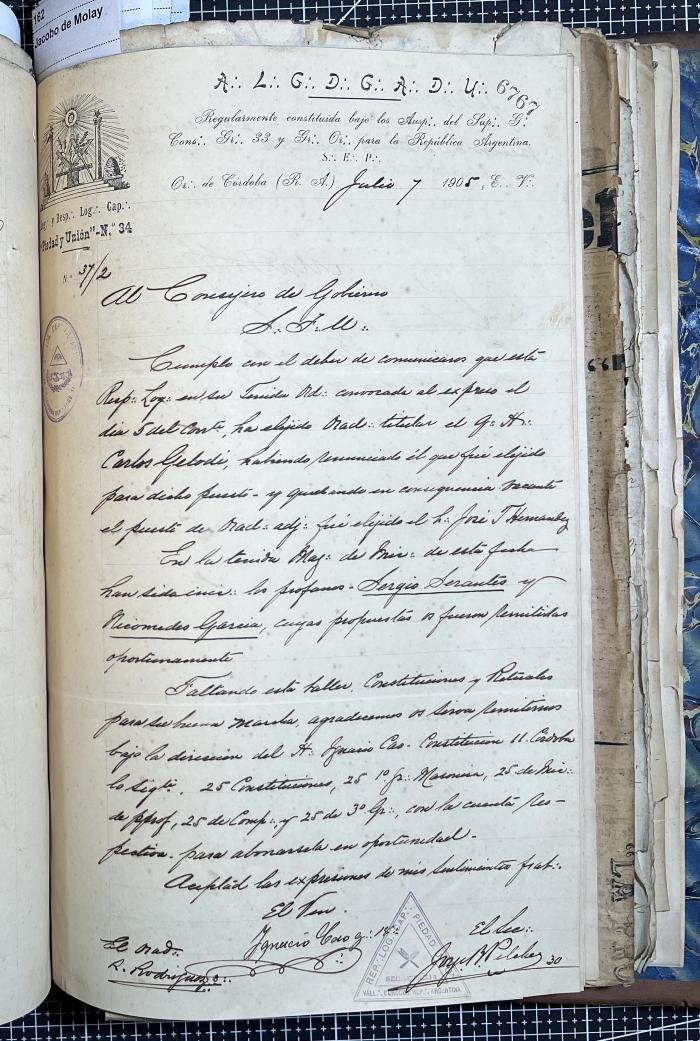 162
Jacobo de Molay
A∴ L∴ G∴ D∴ G∴ A∴ D∴ U∴ 6767
Regularmente constituida bajo los Ausp∴ del Sup∴ G∴
Cons∴ Gr∴ 33 y Gr∴ Or∴ para la República Argentina.
S∴ E∴ P∴
Or∴ de Córdoba (R. A.) Julio 7 1905, E∴ V∴
y Resp∴ Log∴ Cap∴
"Piedad y Unión"-N.º 34
N.º 37/2
Al Consejero de Gobierno
S∴ F∴ U∴
Cumplo con el deber de comunicaros que esta
Resp∴ Log∴ en su Tenida Od∴ convocada al expreso el
dia 5 del Corrte, ha elejido Orad∴ titular el Q∴ H∴
Carlos Gelodi, habiendo renunciado él que fué elejido
para dicho puesto - y quedando en consequencia vacante
el puesto de Orad∴ adj∴ fué elejido el h∴ José T Hernandez
En la tenida Mag∴ de Inic∴ de esta fecha
han sido inic∴ los profanos - Sergio Serantes y
Nicomedes Garcia, cuyas propuestas os fueron remitidas
oportunamente
Faltando esta taller, Constituciones y Rituales
para su buena marcha, agradecemos os sirva remitirnos
bajo la dirección del H∴ Ignacio Cao - Constitucion 11 Córdoba
lo sigte. 25 Constituciones, 25 1º Gr∴ Masonico, 25 de Inic∴
de pprof, 25 de Comp∴ y 25 de 3º Gr∴, con la cuenta res-
pectiva - para abonarsela en oportunidad -
Aceptad las expresiones de mis sentimientos frat∴
El Ven.
El Sec∴
Ignacio Cao g∴ 18∴
El Orad∴
R. Rodriguez 3∴
30
REP∴ LOG∴ CAP∴ PIEDAD
VALL∴ CORDOBA REP∴ ARGENTINA